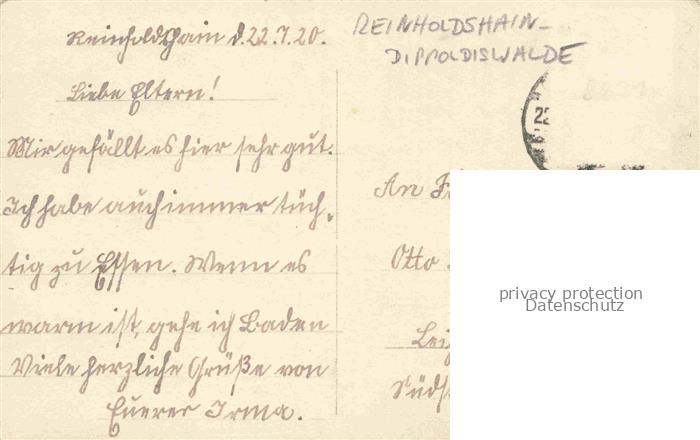 Reinholdshain d. 22.7.20.
REINHOLDSHAIN-
DIPPOLDISWALDE
Liebe Eltern!
Mir gefällt es hier sehr gut.
Ich habe auch immer tüch-
tig zu Essen. Wenn es
warm ist, gehe ich Baden
Viele herzliche Grüße von
Euerer Irma.
22
An
Otto
privacy protection
Datenschutz